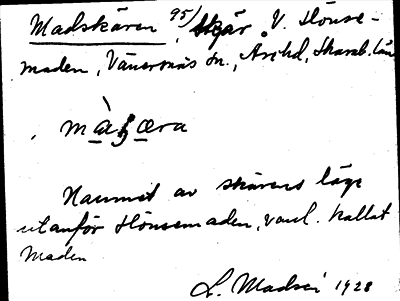 Madskären 95/, Skär V. Hönse-
maden, Vänersnäs sn., Åse hd, Skarab. län
Namnet av skärens läge
utanför Hönsemaden, vanl. kallat
Maden
1928